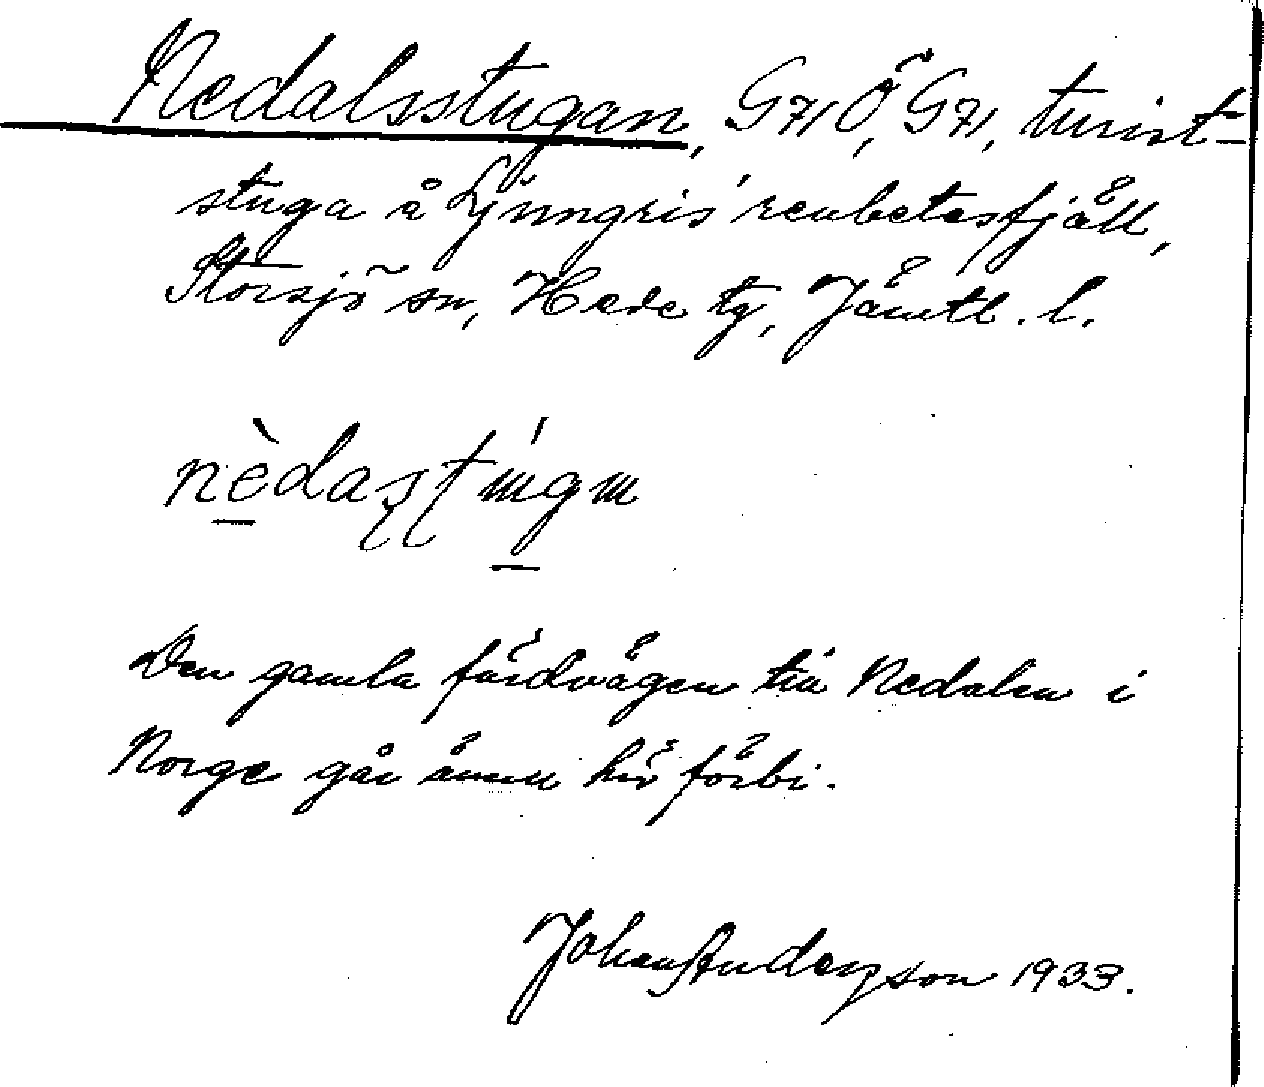 Nedalsstugan, G71Ö, G71, turist-
stuga å Ljungris' renbetesfjäll,
Storsjö sn, Hede tg, Jämtl. l.
Den gamla färdvägen till Nedalen i
Norge går ännu här förbi.
Johan Anderzson 1933.